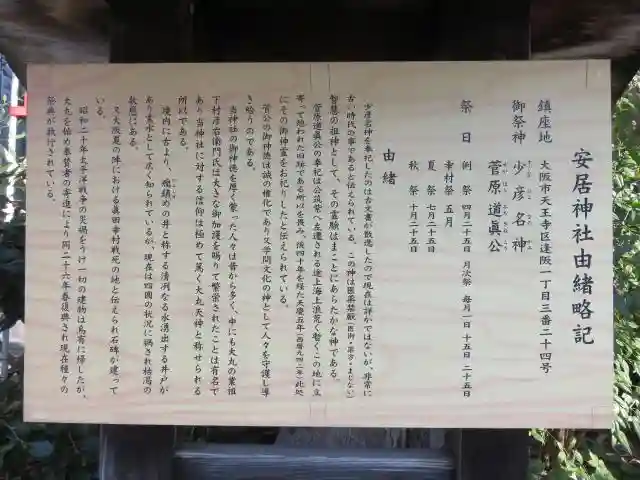 安居神社由緒略記
鎮座地 大阪市天王寺区逢阪一丁目三番二十四号
御祭神 少彦名神
菅原道眞公
祭日 例祭 四月二十五日 月次祭 毎月一日 十五日 二十五日
幸村祭 五月
夏祭 七月二十五日
秋祭 十月二十五日
由緒
少彦名神を奉祀したのは古文書が散逸したので現在は詳かではないが、非常に
古い時代の事であると伝えられている。この神は医薬禁厭(医術・薬学・まじない)
智慧の祖神として、その霊験はまことにあらたかな神である。
菅原道眞公の奉祀は公筑紫へ左遷される途上海上浪荒く暫くこの地に立
寄って憩われた旧跡である所以を畏み、後四十年を経た天慶五年(西暦九四二年)此処
にその御神霊をお祀りしたと伝えられている。
菅公の御神徳は誠の権化であり又学問文化の神として人々を守護し導
き給うのである。
当神社の御神徳を厚く蒙った人々は昔から多く、中にも大丸の業祖
下村彦右衛門氏は大いなる御加護を賜りて繁栄されたことは有名で
あり当神社に対する信仰は極めて篤く大丸天神と称せられる
所以である。
境内に古より、癇鎮めの井と称する清冽なる水湧出する井戸が
あり天水として広く知られているが、現在は四囲の状況に禍され枯渇の
状態にある。
又大阪夏の陣における眞田幸村戦死の地と伝えられ石碑が建って
いる。
昭和二十年太平洋戦争の災禍をうけ一切の建物は烏有に帰したが、
大丸を始め奉賛者の奉進により同二十六年春復興され現在種々の
祭典が執行されている。